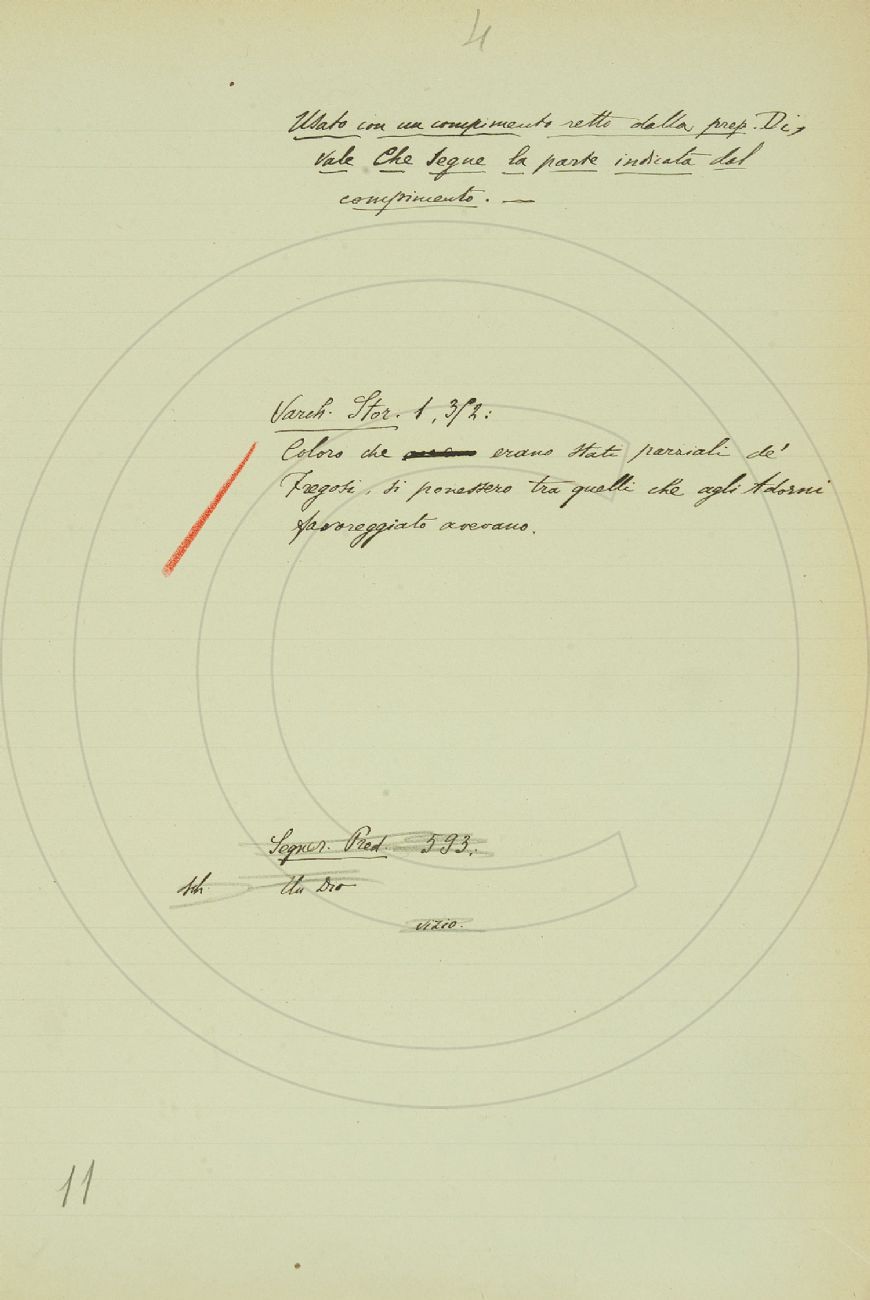 4
Usato con un compimento retto dalla prep. Di,
vale Che segue la parte indicata dal
compimento. —
Varch. Stor. 1, 352:
Coloro che erano stati parziali de'
Fregosi, si ponessero tra quelli che agli Adorni
favoreggiato avevano.
Segner. Pred. 593.
Un Dio
vizio.
11